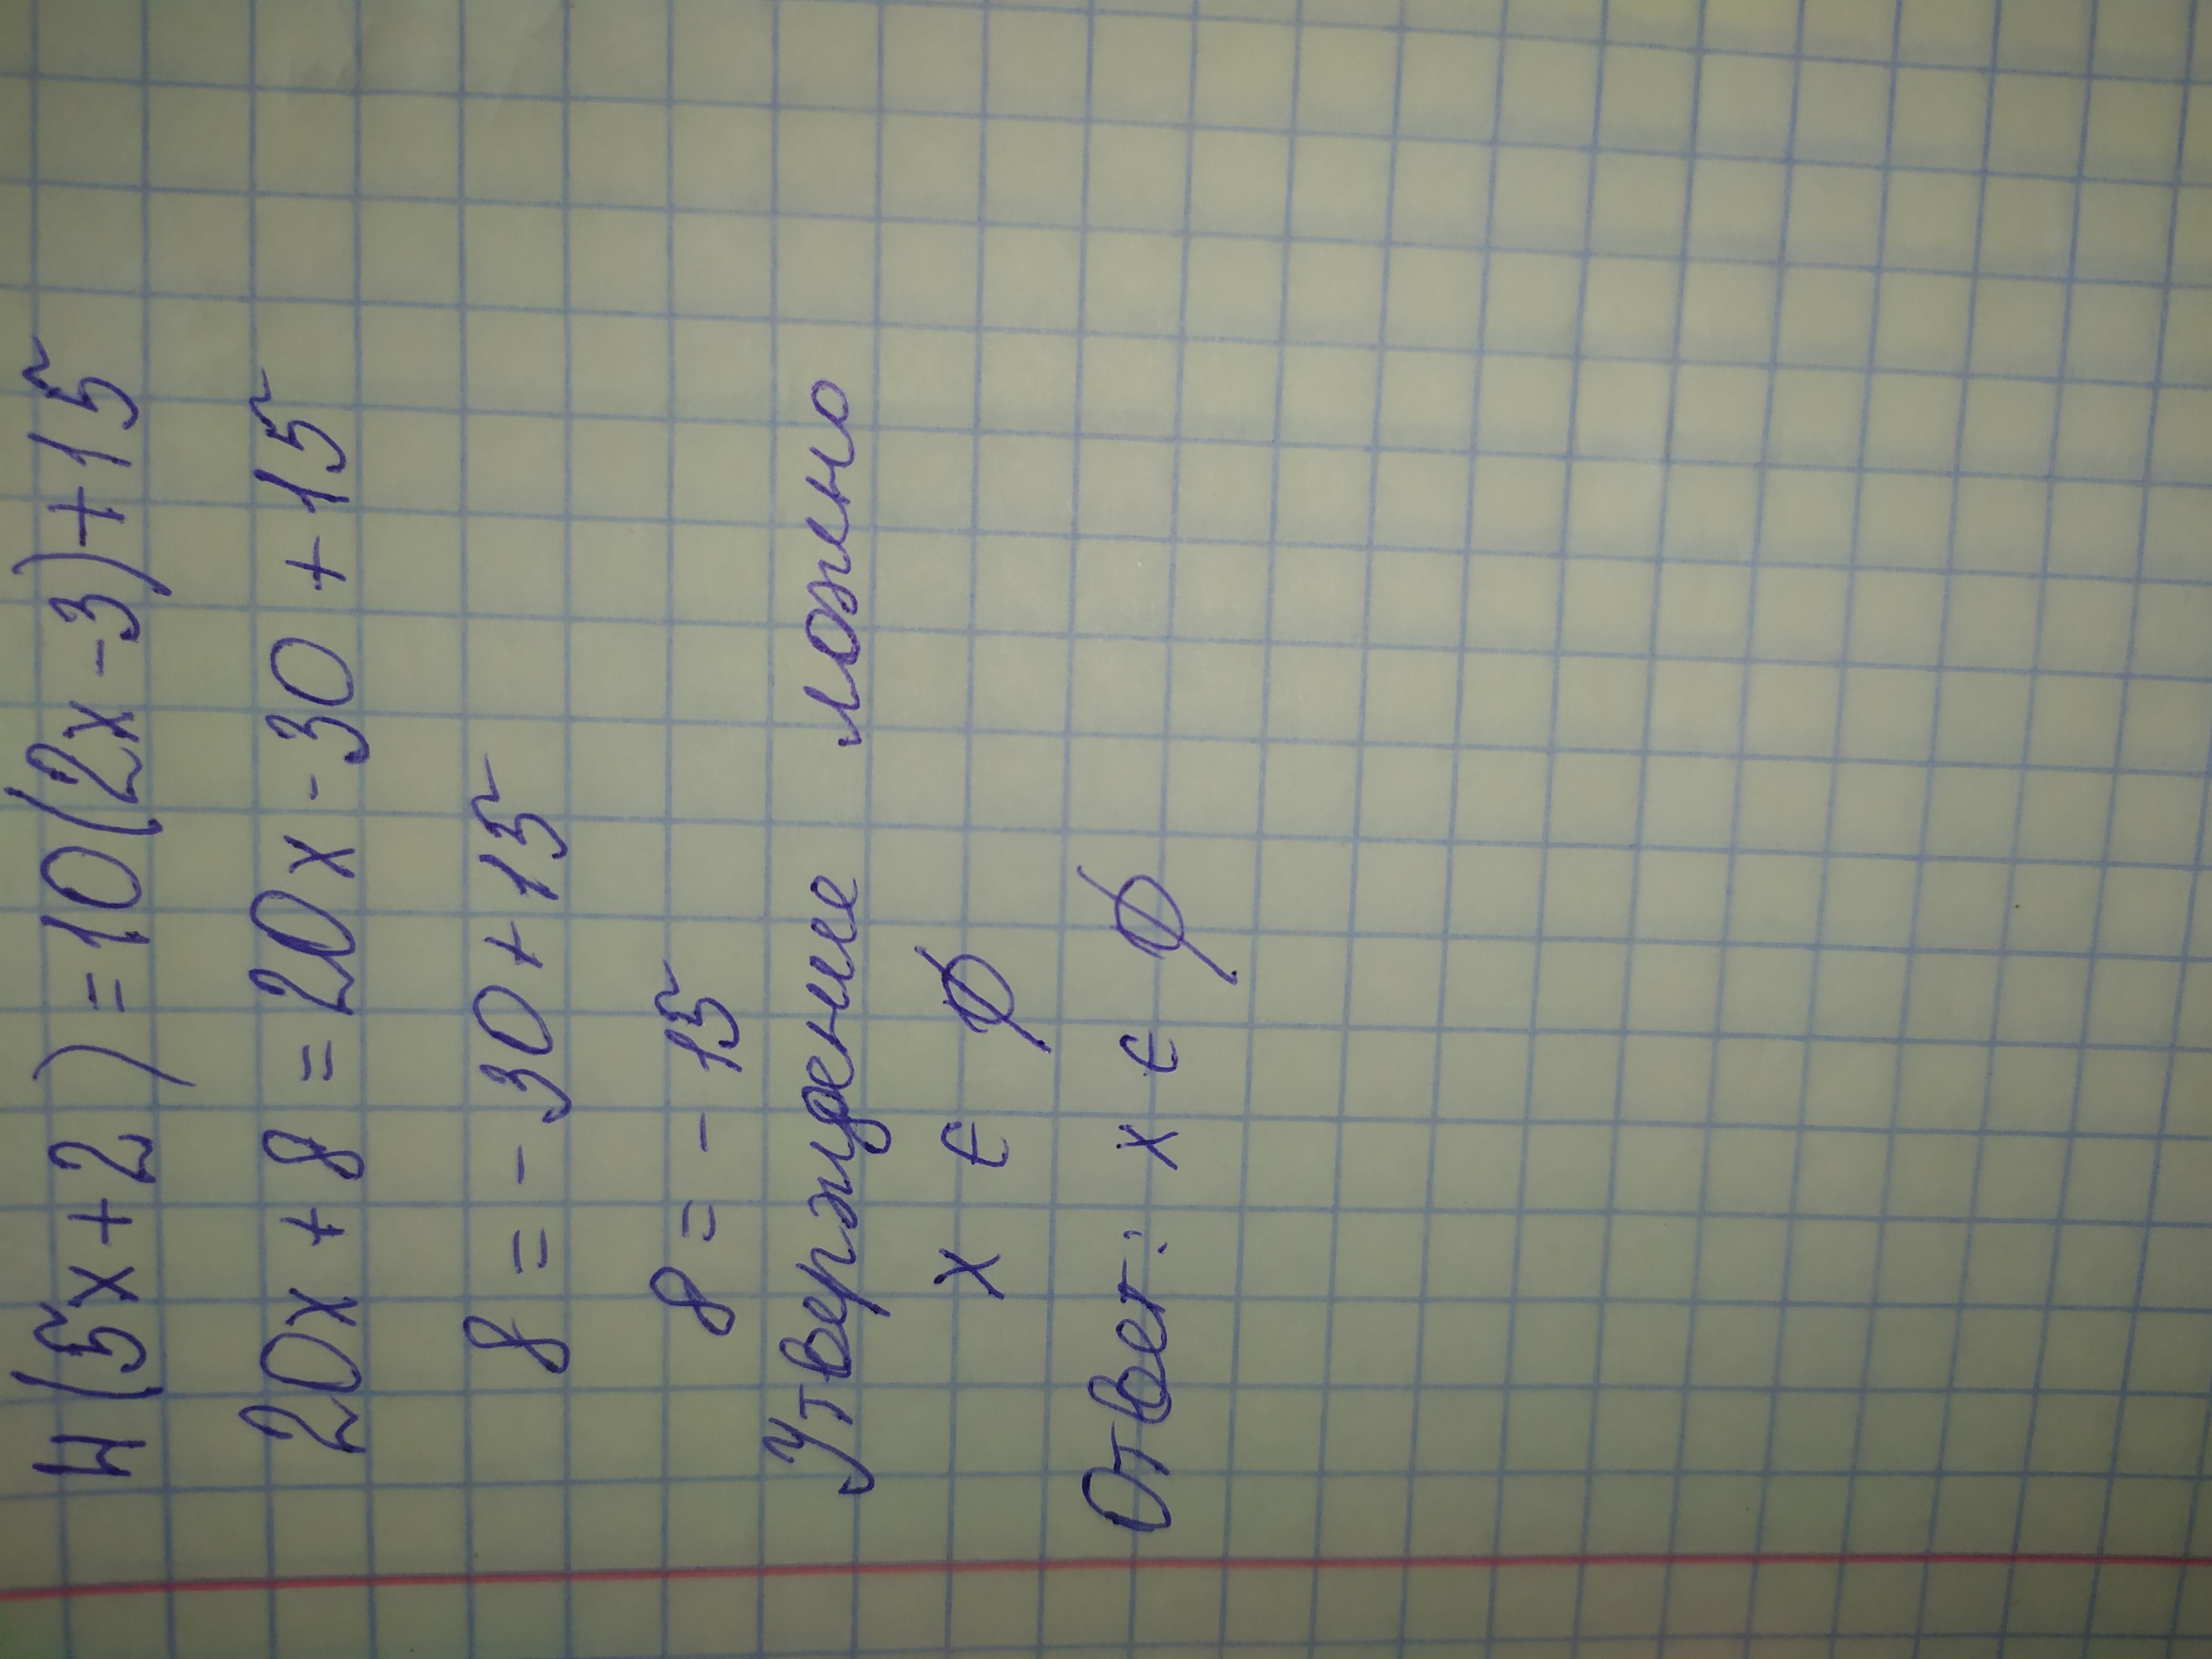 4(5x+2)=10(2x-3)+15
20x+8=20x-30+15
8=-30+15
8=-15
Утверждение ложно
x ∈ ∅
Ответ: x ∈ ∅